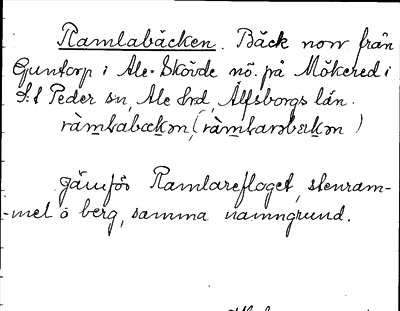 Ramlabäcken. Bäck norr från
Guntorp i Ale-Skövde nö. på Mökered i
S:t Peder sn, Ale hrd, Älfsborgs län.
jämför Ramlareflaget, stenram-
-mel o berg, samma namngrund.